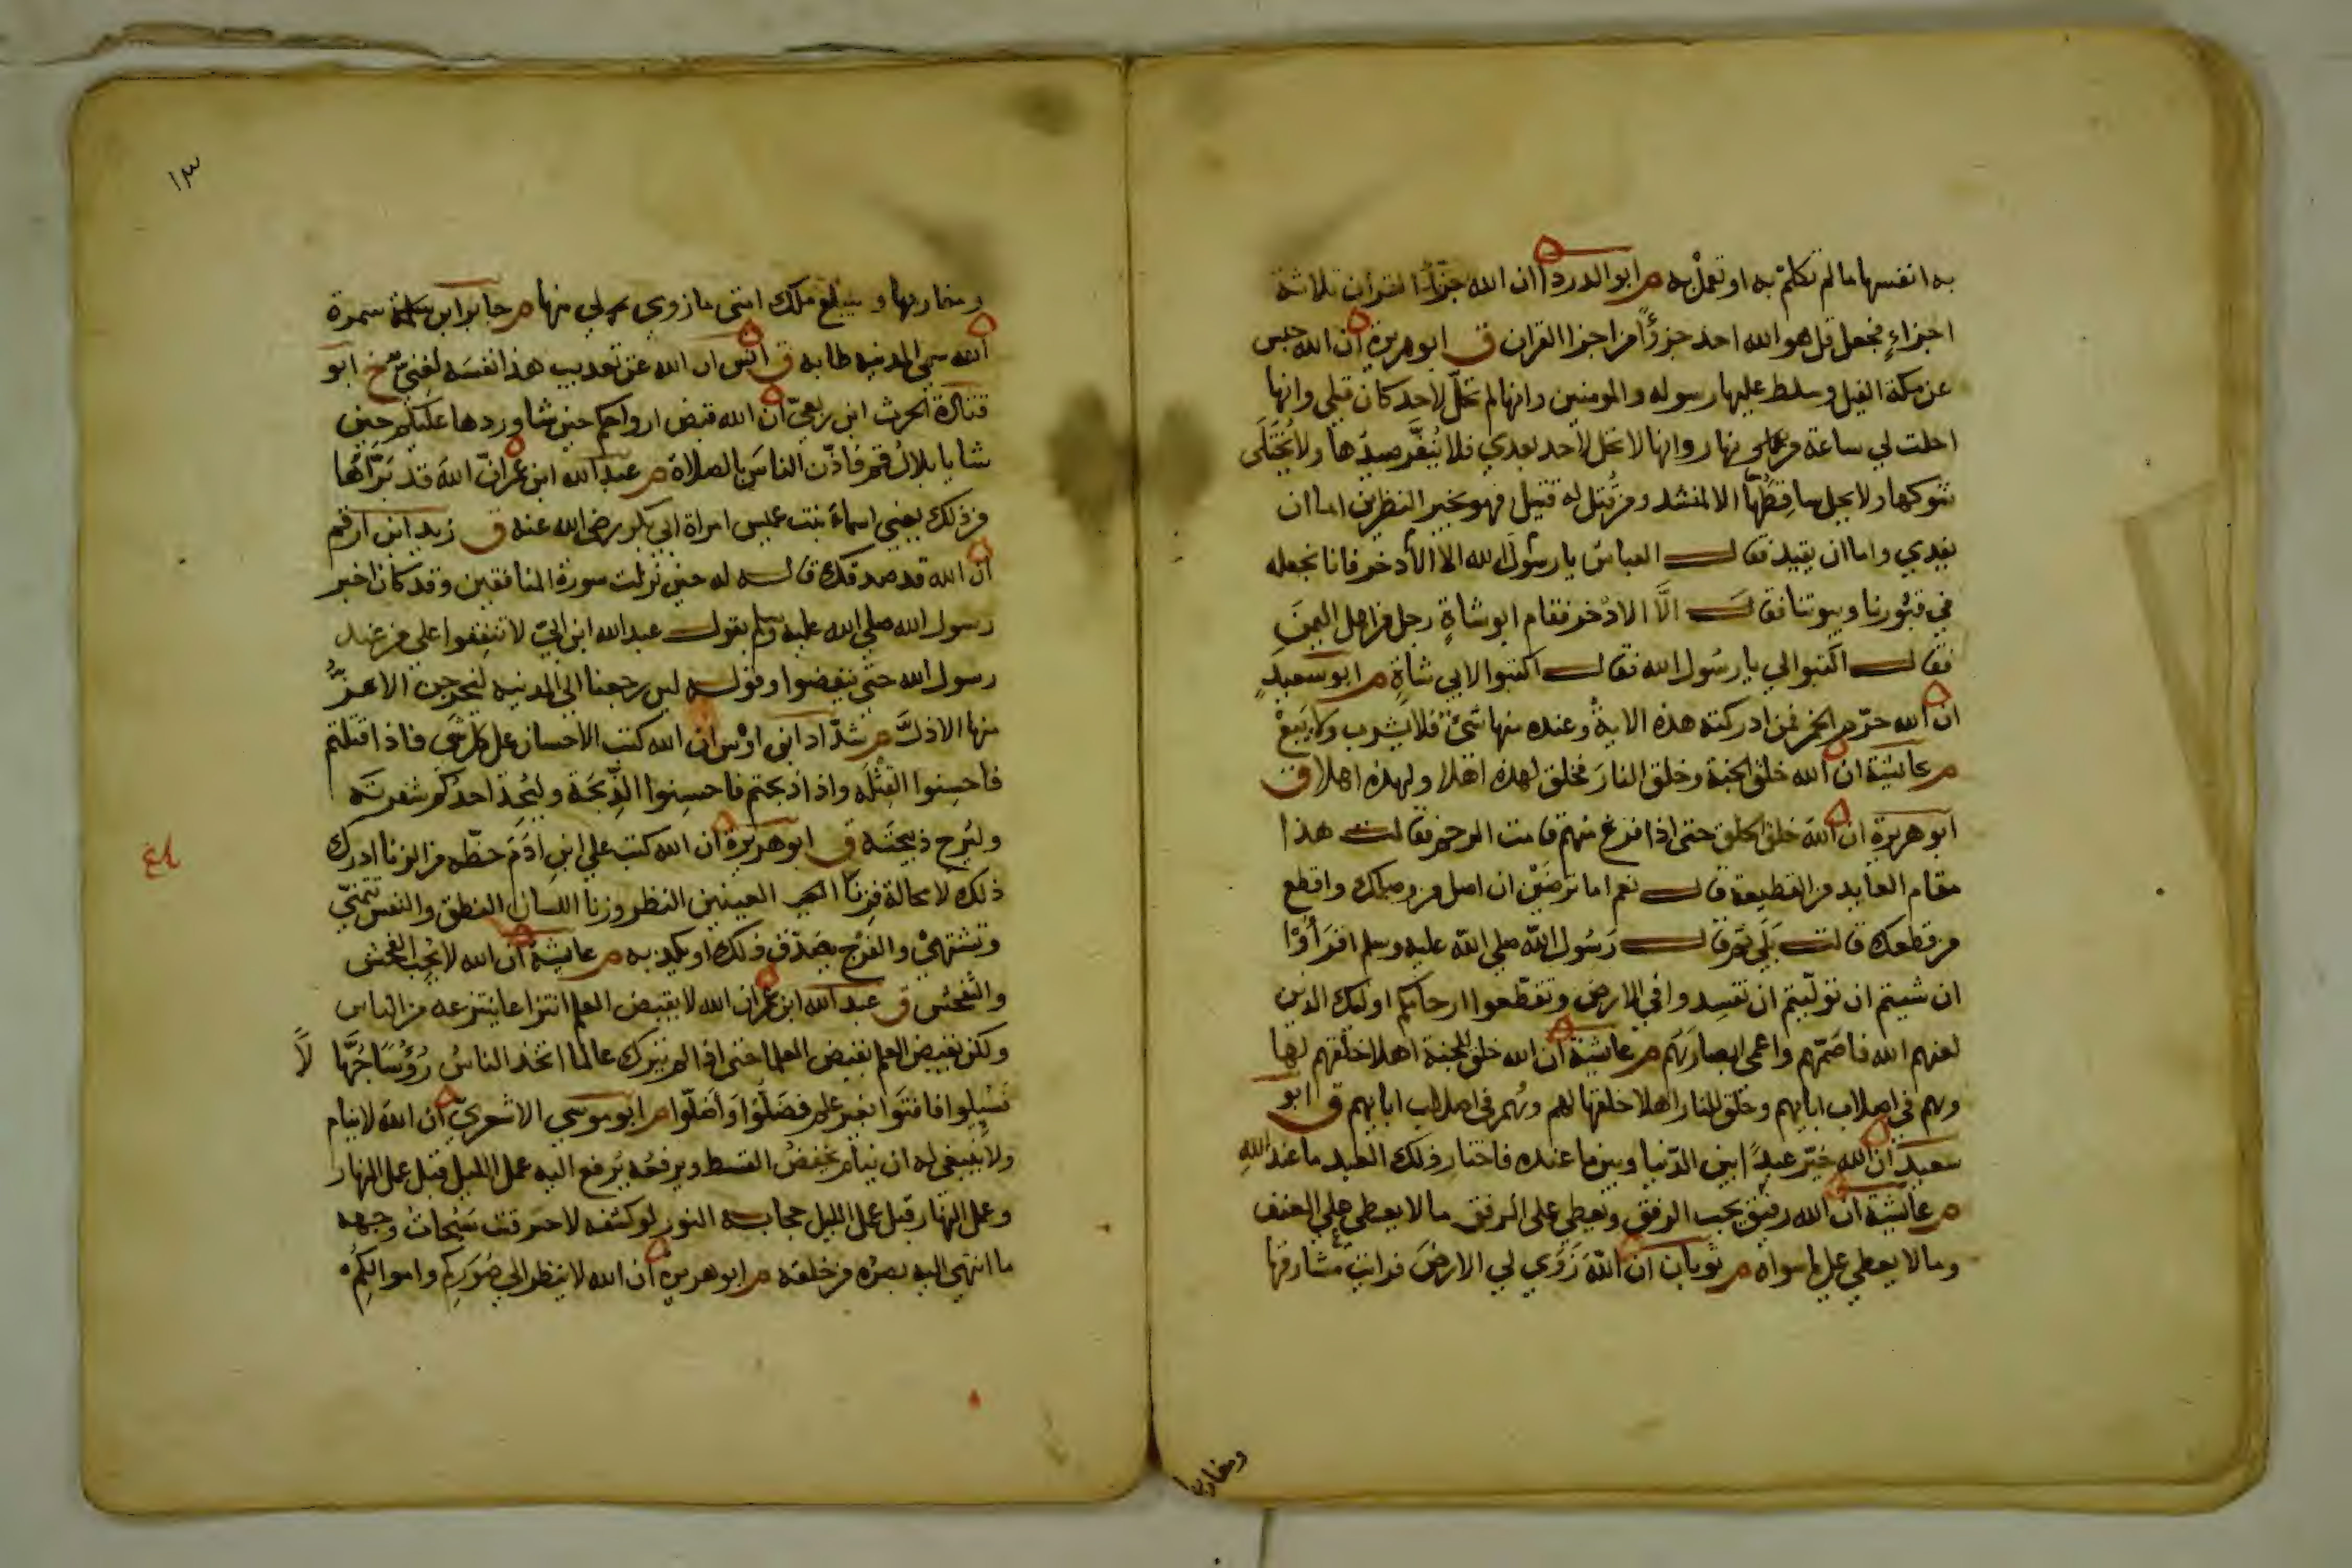 به انفسها ما لم تكلم به او تعمل به م ابو الدرداء ان الله جزأ القران ثلاثة
اجزاءٍ فجعل قل هو الله احد جزؤًا من اجزا القران ق ابو هريرة ان الله حبس
عن مكة الفيل وسلط عليها رسوله والمومنين وانها لم تحلّ لاحد كان قبلي وانها
احلت لي ساعة من نهار وانها لا تحل لاحد بعدي فلا يُنَفَّر صيدُها ولا يُختَلَى
شوكها ولا يحل ساقِطَتُها الا لمنشد ومن قُتِل له قتيل فهو بخير النظرين اما ان
يفدي واما ان يقيد فقال العباس يا رسُول الله الا الاذخر فانا نجعله
في قبُورنا وبيوتنا فقال الَّا الاذْخر فقام ابو شاةٍ رجل من اهل اليمَنِ
فقال اكتبوا لي يا رسُول الله فقال اكتبوا لابي شاةٍ م ابو سَعيدٍ
ان الله حرّم الخمر فمن ادركته هذه الاية وعنده منها شَيءٌ فلا يشرب ولا يَبعْ
م عائشة ان الله خلق الجنة وخلق النارَ فخلق لهذه اهلا ولهذه اهلا ق
ابو هريرة ان اللهَ خلق الخلق حتى اذا فرغ منهم قامت الرحم فقالت هذا
مقام العايد من القطيعة قال نعم اما ترضَيْن ان اصل من وصلك واقطع
من قطعك قالت بَلَي ثم قال رَسُول اللهِ صلي الله عليه وسلم اقرَأوْا
ان شيتم ان توليتم ان تفسِدوا في الارض وتقطّعوا ارحامكم اوليك الذين
لعنهم الله فاصَمّهم واعمي ابصارَهُم م عائشة ان الله خلق للجنة اهلا خلقهم لها
وهم في اصلاب ابايهم وخلق للنار اهلا خلقها لهم وهُم في اصلاب ابايهم ق ابو
سعيد ان الله خيّر عبدًا بين الدّنيا وبين ما عنده فاختار ذلك العبد ما عند اللهِ
م عائشة ان الله رفيق يحب الرفق ويُعطي على الرفق ما لا يعطي علي العنف
وما لا يعطي علي ما سواه م ثوبان ان اللهَ زَوَي لي الارضَ فرايت مَشارقها
ومغاربها
١٣
ومغاربها وسيبلغ ملك امتي ما زوي لي منها م جابر ابن سمرة
ان الله سمي المدينه طابه ق انس ان الله عن تعديب هذا نفسَه لغَنيّ خ ابو
قتادة الحرث ابن ربعيّ ان الله قبض ارواحكم حين شا وردها عليكم حين
شا يا بلالُ قم فاذّن الناسَ بالصلاة م عبد الله ابن عمر انّ اللهَ قد بَرّأها
من ذلك يعني اسماءَ بنت عميس امراة ابي بكر رضي الله عنه ق زيد ابن ارقم
ان الله قد صدقك قاله له حين نزلت سورة المنافقين وقد كان اخبر
رسول الله صلي الله عليه وسلم بقول عبد الله ابن ابيّ لا تنفِقوا علي من عند
رسول الله حتّي ينفضوا وقوله لين رجعنا الي المدينه ليخرجن الاعزُّ
منها الاذلَّ م شدّاد ابن اوْس ان الله كتب الاحسان على كل شَي فاذا قتلتم
فاحسِنوا القِتْلَه واذا ذبحتم فاحسِنوا الذِّبحَة وليُحِدّ احدُكم شفرتَه
وليُرِح ذبيحتَه ق ابو هريرة ان الله كتب علي ابن ادَمَ حظّه من الزنا ادرك
بلغ
ذلك لا محالة فزنَا العينين النظر وزنا اللسان النطق والنفس تتمنّي
وتشتهيْ والفَرْج يصَدّق ذلك او يكذبه م عائشة ان الله لا يُحب الفحش
والتفحّش ق عبد الله ابن عمر ان الله لا يقبض العلم انتزاعا ينتزعه من الناس
ولكن يقبض العلم بقبض العلما حتى اذا لم يترك عالما اتخذ الناسُ رُؤُسًا جُهَّالًا
فسْيِلوا فافتَوا بغير علم فضَلّوْا وَأضَلّوا م ابو موسي الاشعريّ ان الله لا ينام
ولا ينبغي له ان ينام يخفِضُ القسط ويرفعُه يُرفع اليه عمل الليل قبل عمل النهار
وعمل النهار قبل عمل الليل حجابه النور لو كشفه لاحترقت سُبُحاتُ وجهه
ما انتهي اليه بصرُه من خلقه م ابو هريرة ان الله لا ينظر الي صُوَرِكم واموالكم